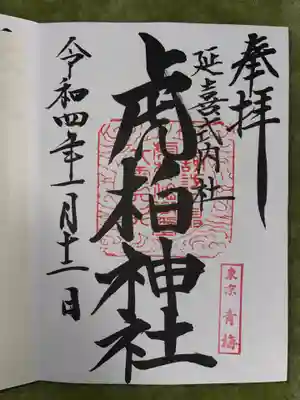 奉拝
延喜式内社
虎柏神社
令和四年十一月十二日
東京
青梅